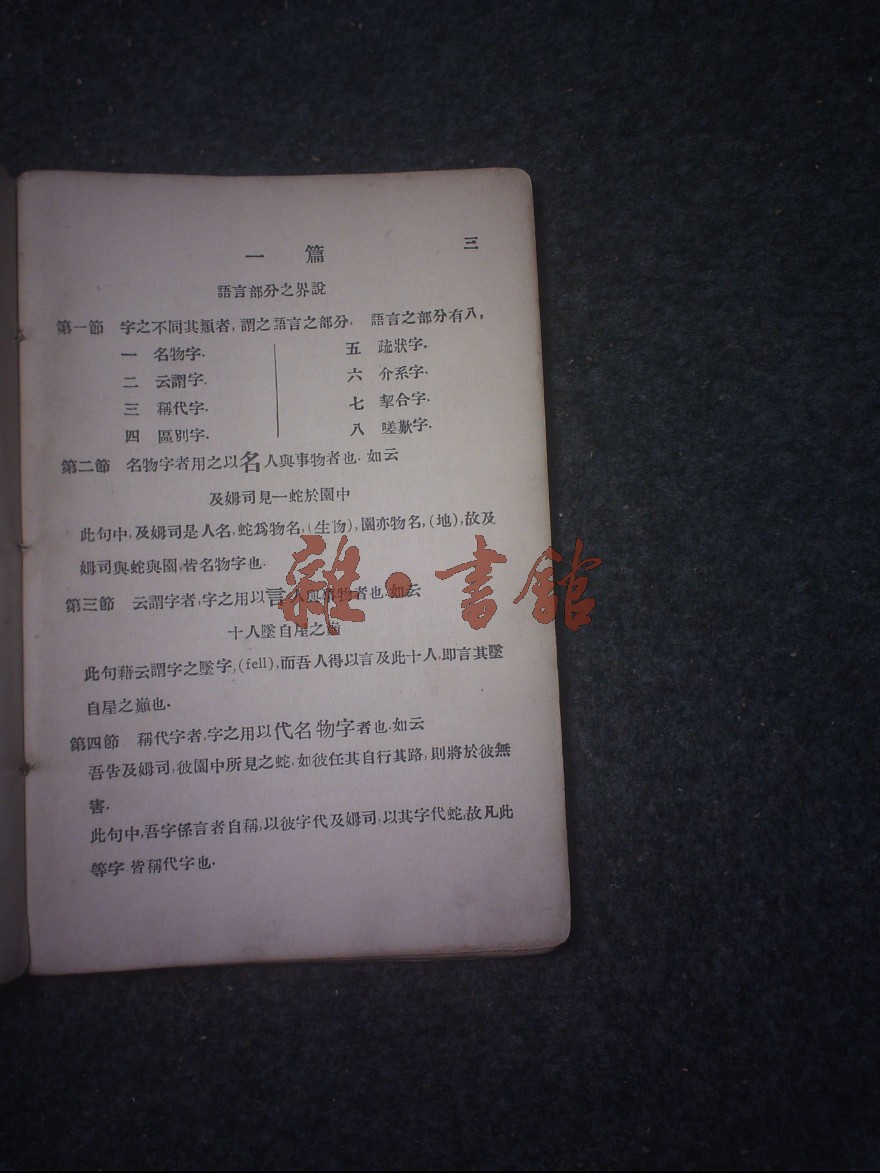 三
一 篇
語言部分之界說
第一節 字之不同其類者,謂之語言之部分. 語言之部分有八,
一 名物字. 五 疏狀字.
二 云謂字. 六 介系字.
三 稱代字. 七 挈合字.
四 區別字. 八 嗟歎字.
第二節 名物字者用之以名人與事物者也. 如云
及姆司見一蛇於園中
此句中,及姆司是人名,蛇爲物名,(生物),園亦物名,(地),故及
姆司與蛇與園,皆名物字也.
第三節 云謂字者,字之用以言人與事物者也.如云
十人墜自屋之巔
此句藉云謂字之墜字,(fell),而吾人得以言及此十人,即言其墜
自屋之巔也.
第四節 稱代字者,字之用以代名物字者也.如云
吾告及姆司,彼園中所見之蛇,如彼任其自行其路,則將於彼無
害.
此句中,吾字係言者自稱,以彼字代及姆司,以其字代蛇,故凡此
等字 皆稱代字也.
雜·書館